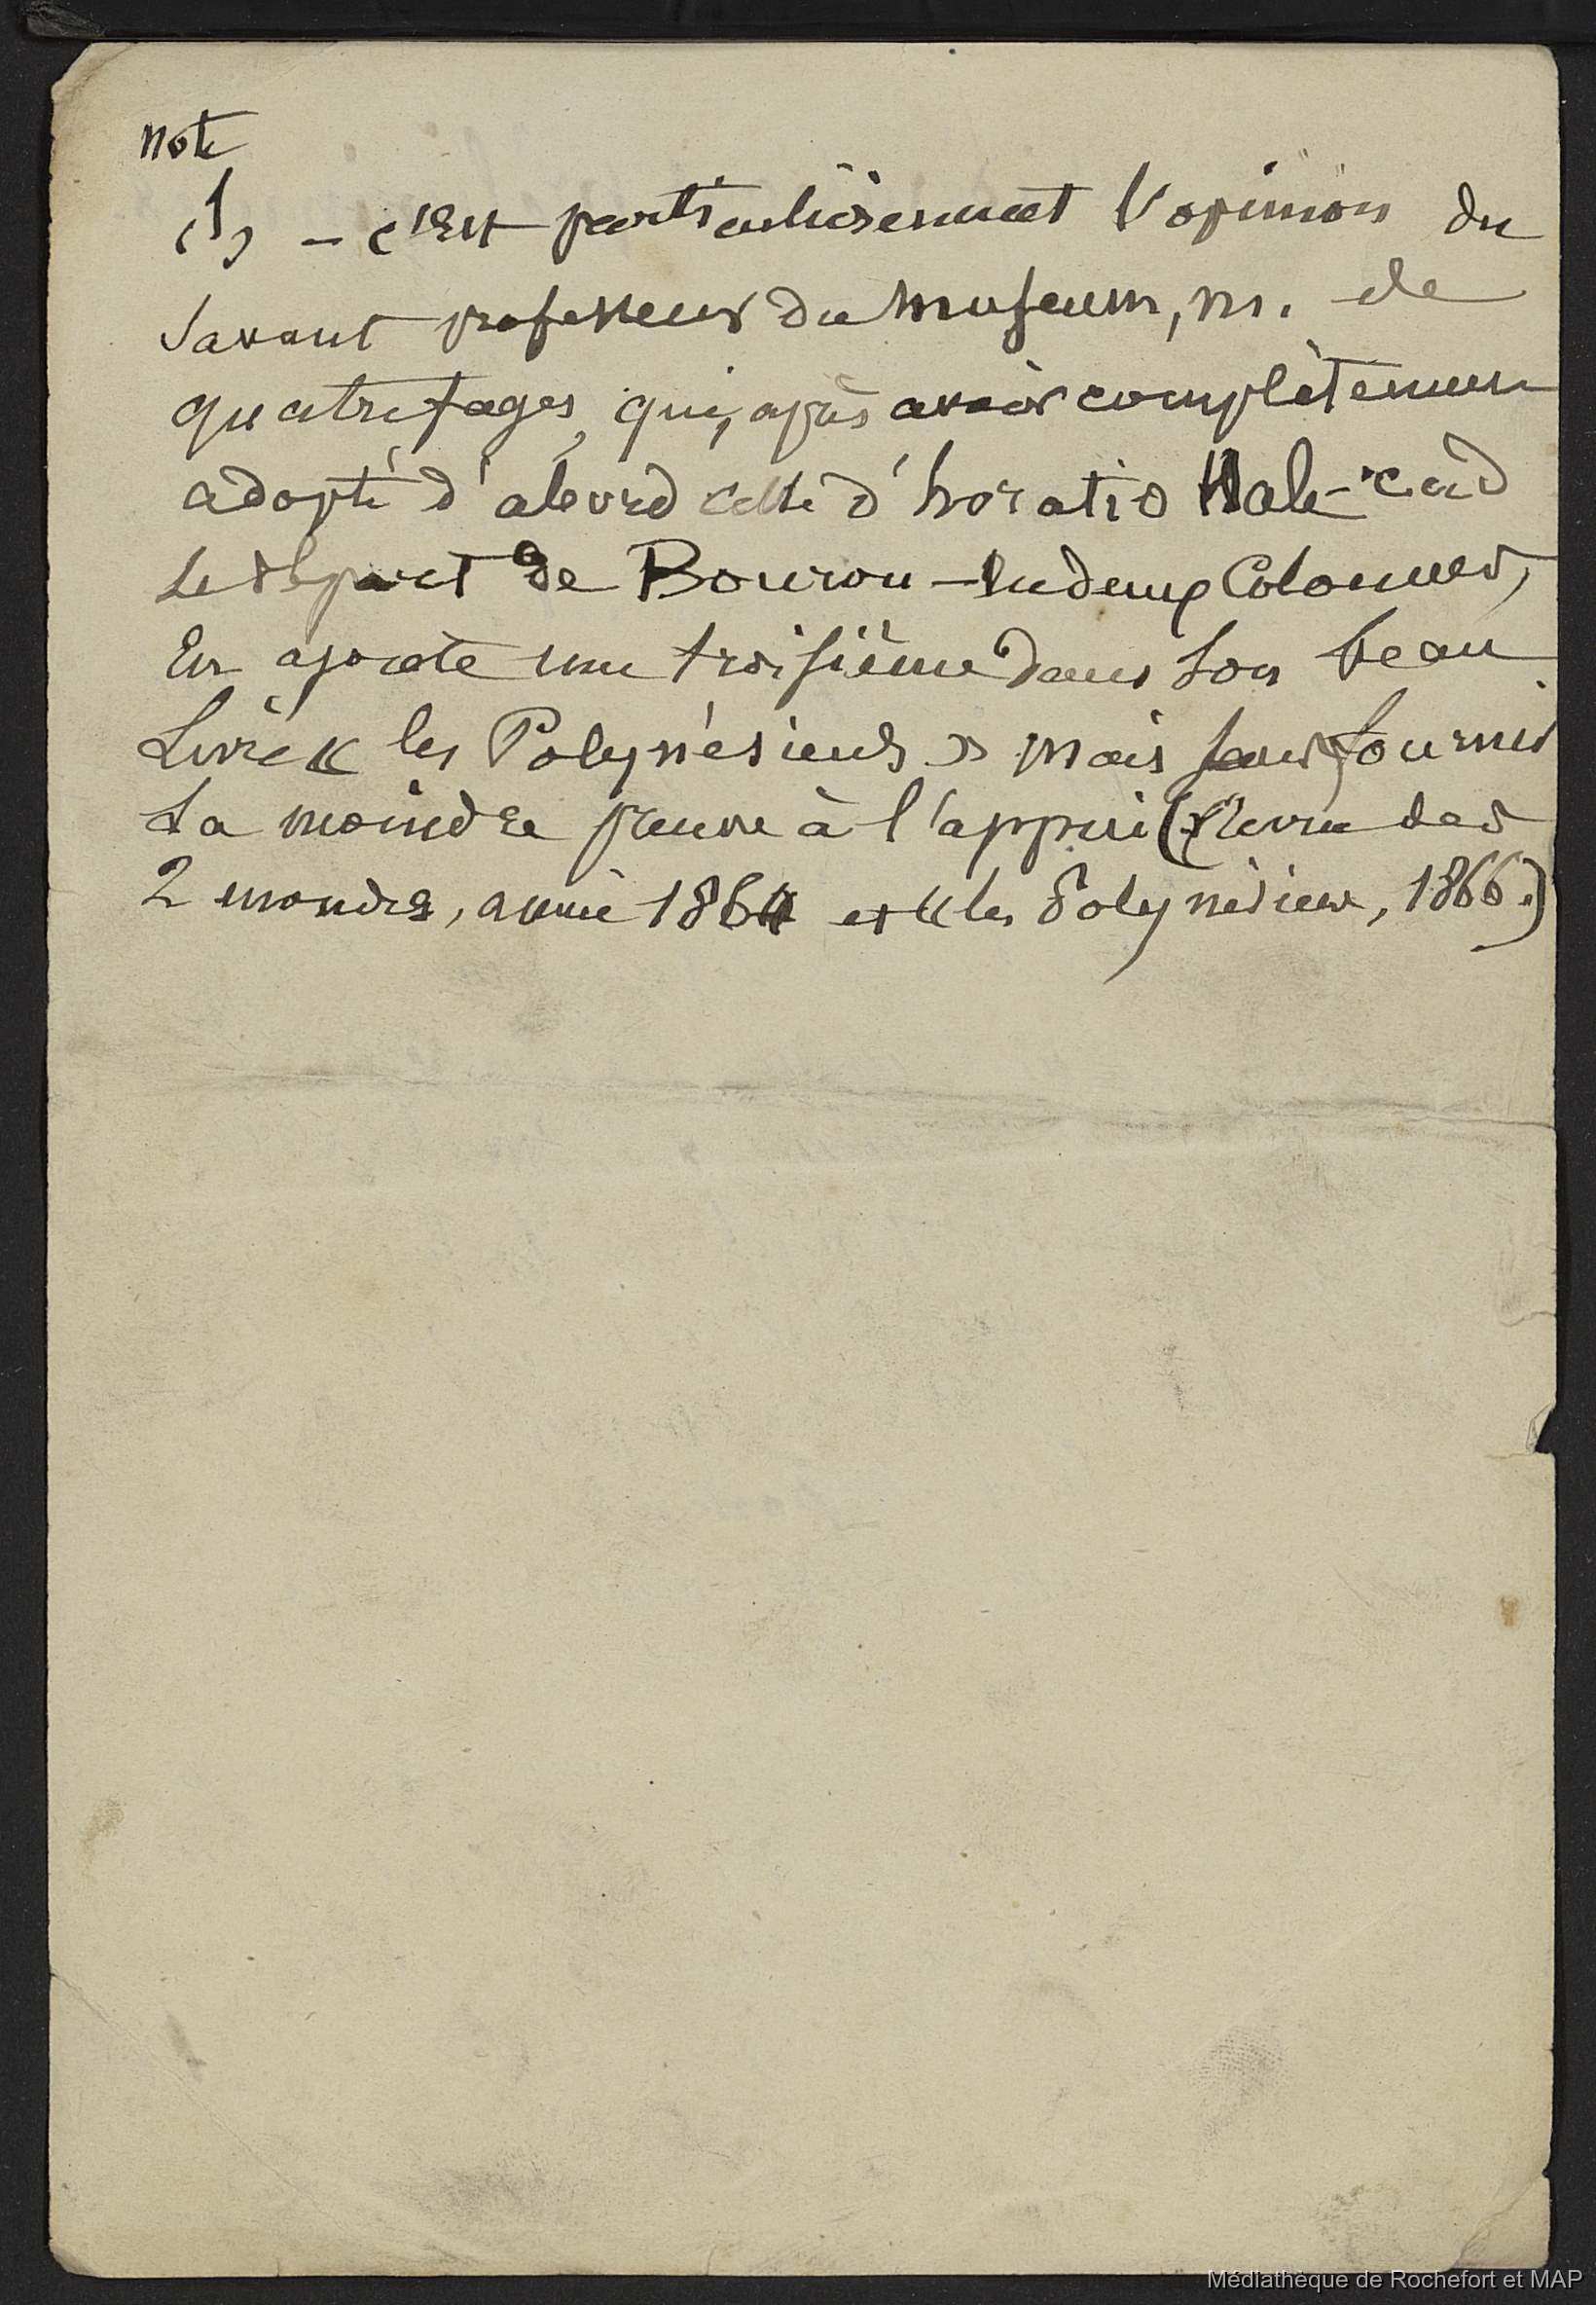 Note
(1) – c'est particulièrement l'opinion du
savant professeur du museum, m. de
quatrefages, qui, après avoir complètement
adopté d'abord celle d'horatio Hale – cad
le départ de Bourou – en deux Colonnes,
En ajoute une troisième dans son beau
Livre « les Polynésiens » mais sans fournir
La moindre preuve à l'appui (Revue des
2 mondes, année 1864 et « les Polynésiens, 1866.)
Médiathèque de Rochefort et MAP